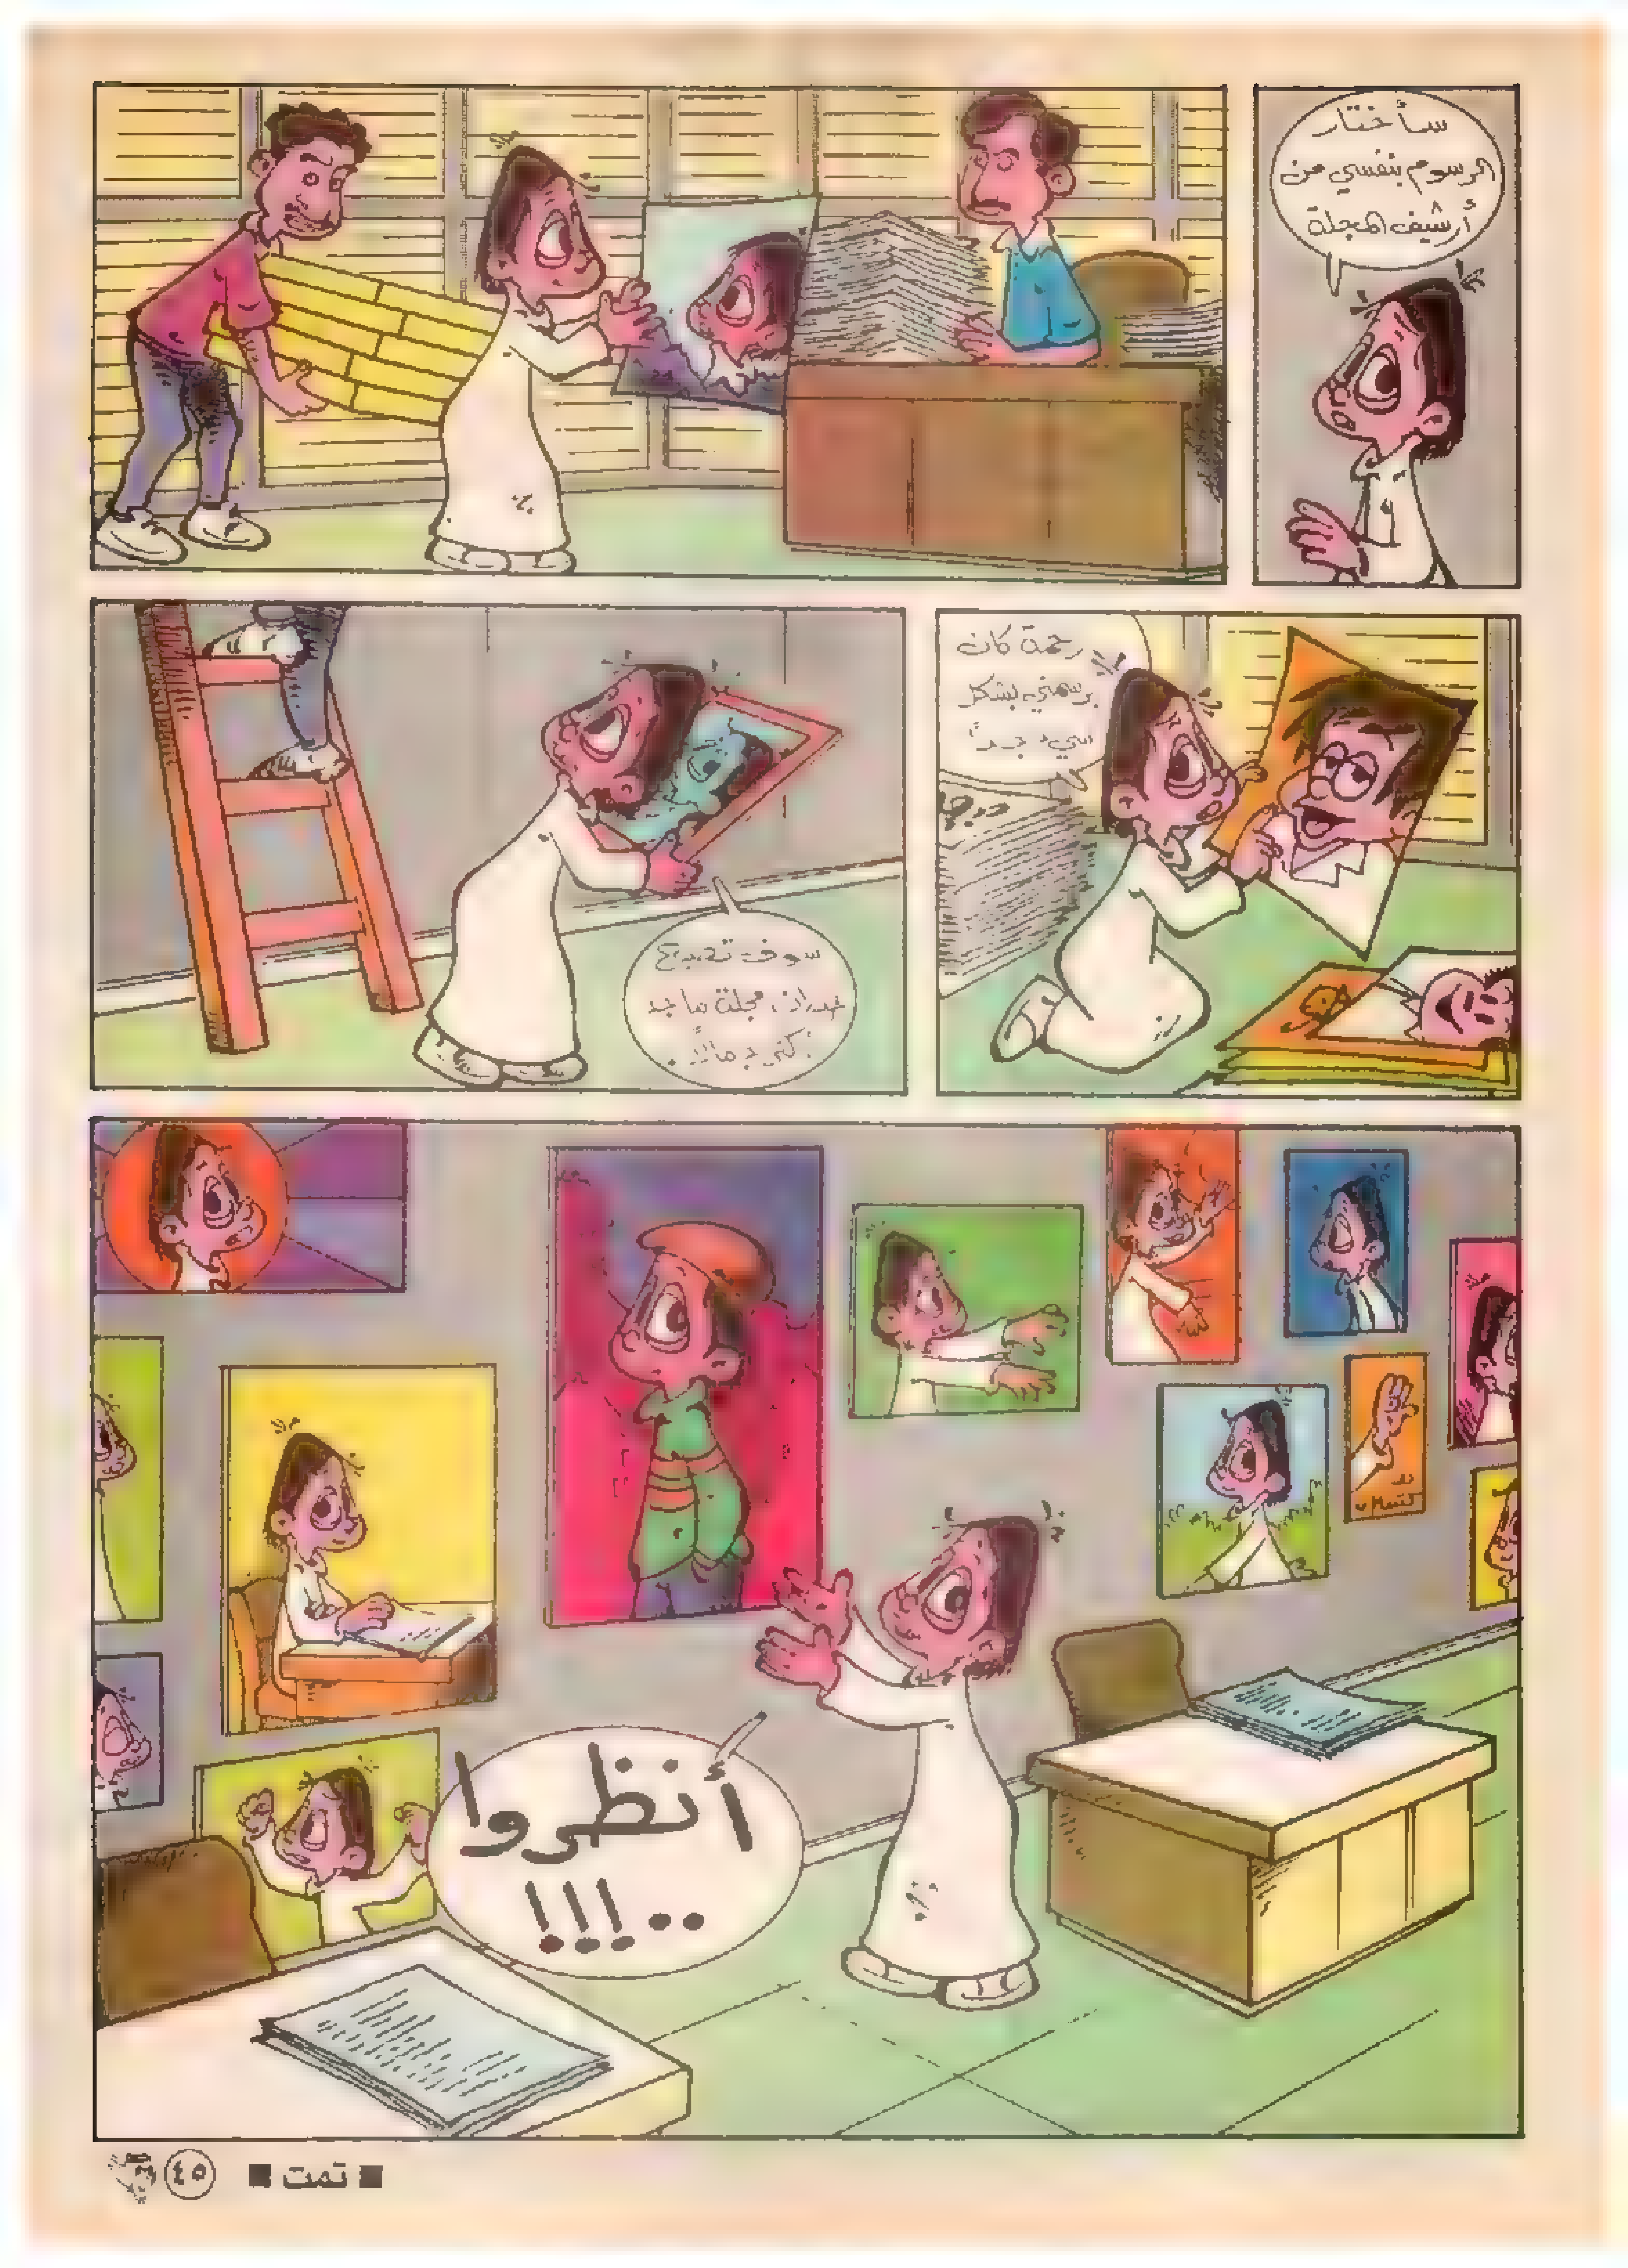 سأختار
الرسوم بنفسي من
أرشيف المجلة
رحمة كان
يرسمني بشكل
سيء جداً
سوف تصبح
جدران مجلة ماجد
أكثر جمالاً.
أنظروا
..!!!
■ تمت ■
٤٥